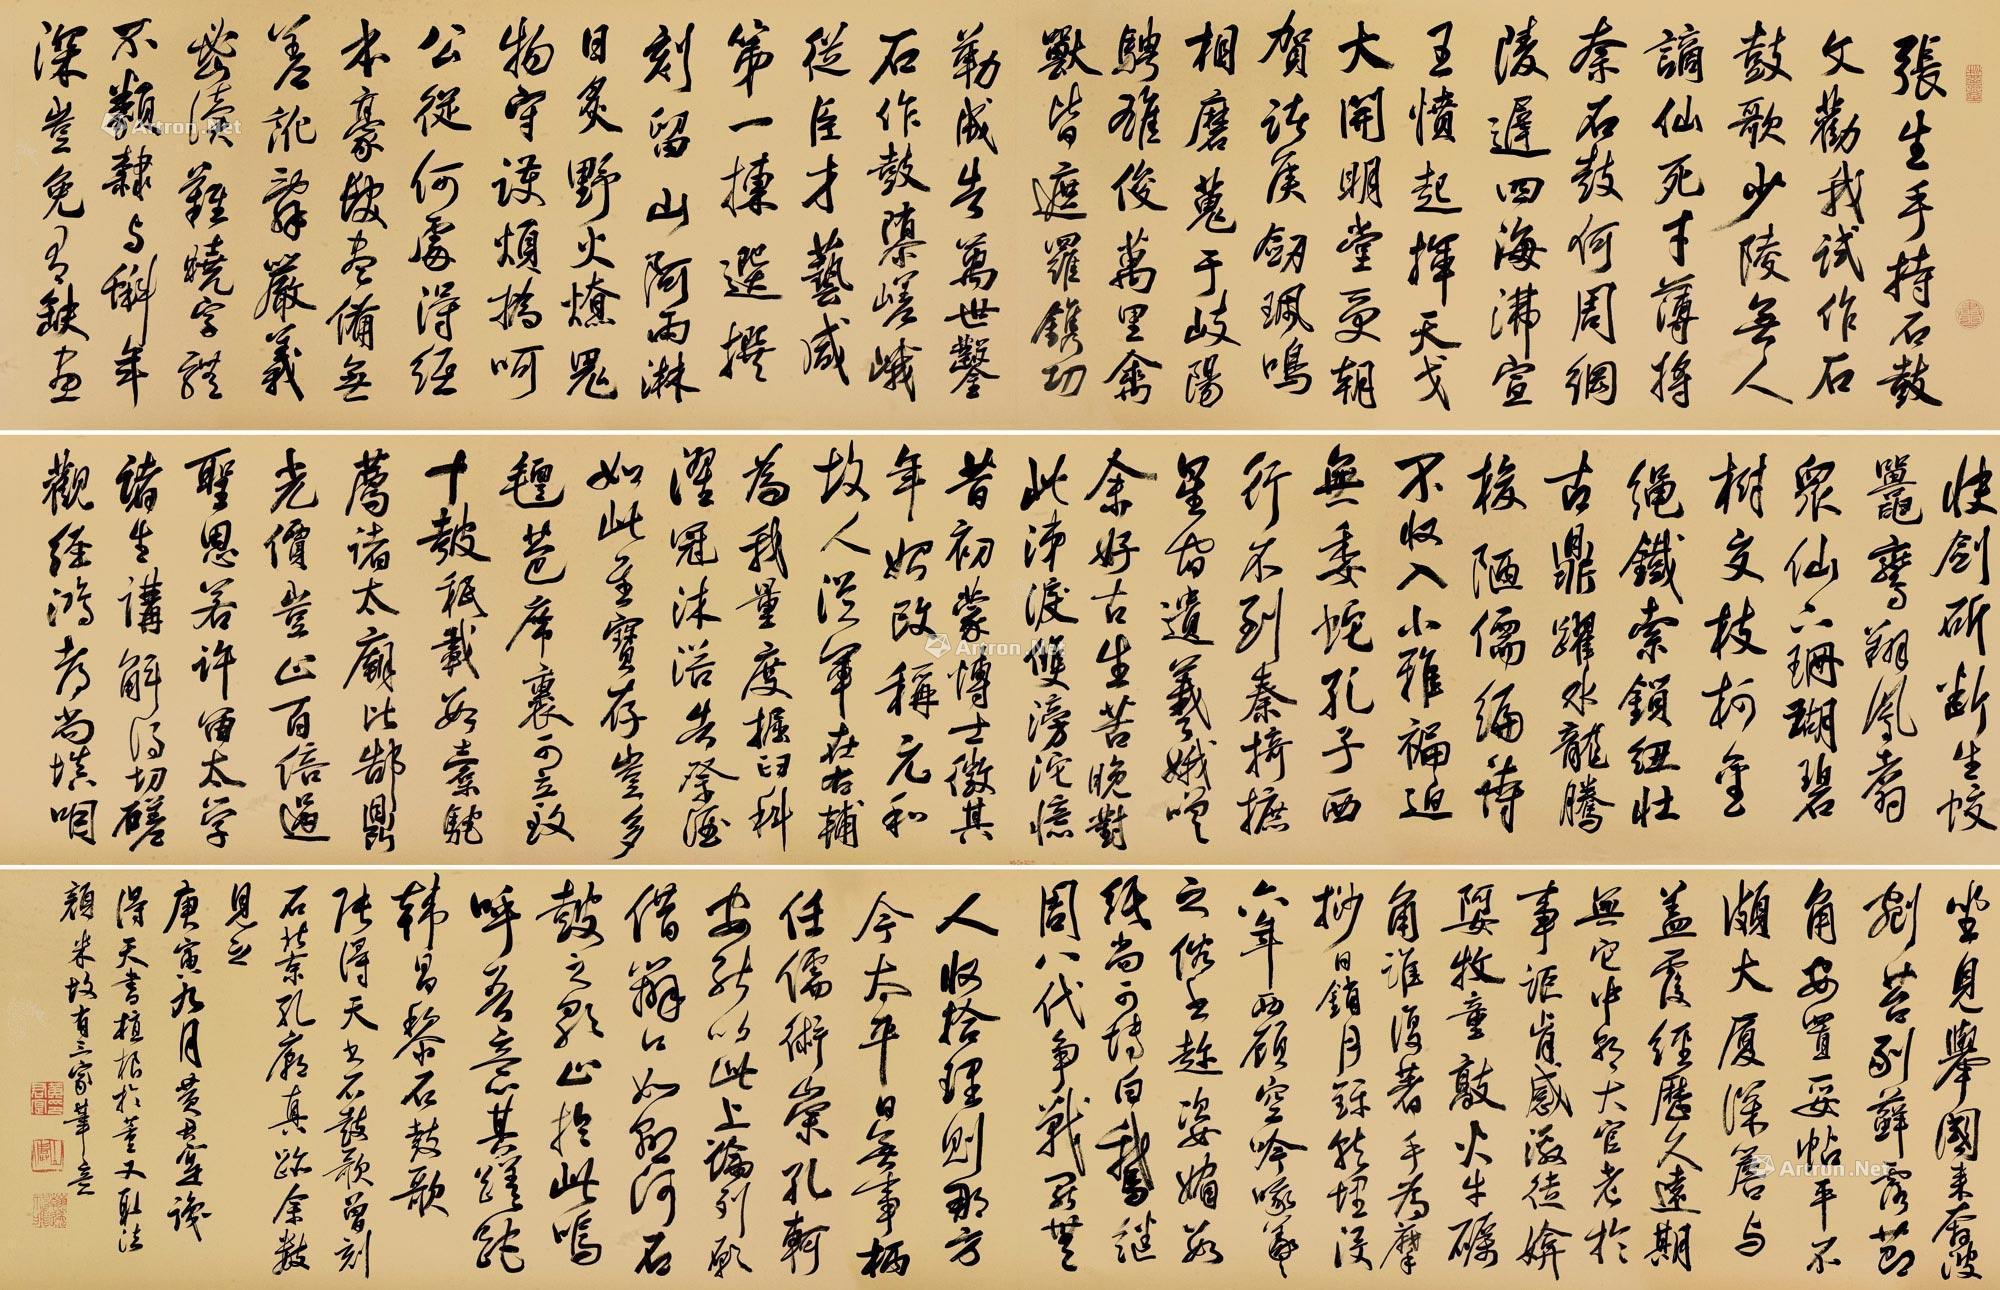 張生手持石鼓
文勸我試作石
鼓歌少陵無人
謫仙死才薄將
奈石鼓何周綱
陵遲四海沸宣
王憤起揮天戈
大開明堂受朝
賀諸侯劒珮鳴
相磨蒐于岐陽
騁雄俊萬里禽
獸皆遮羅鐫功
勒成告萬世鑿
石作鼓隳嵯峨
從臣才藝咸
第一揀選撰
刻留山阿雨淋
日炙野火燎鬼
物守護煩撝呵
公從何處得紙
本豪髮盡備無
差訛辭嚴義
密讀難曉字體
不類隸與蝌年
深豈免有缺畫
快劍斫斷生蛟
鼉鸞翔鳳翥
衆仙下珊瑚碧
樹交枝柯金
繩鐵索鎖紐壯
古鼎躍水龍騰
梭陋儒編詩
不收入小雅褊迫
無委蛇孔子西
行不到秦掎摭
星宿遺羲娥嗟
余好古生苦晚對
此涕淚雙滂沱憶
昔初蒙博士徵其
年始改稱元和
故人從軍在右輔
為我量度掘臼科
濯冠沐浴告祭酒
如此至寶存豈多
氈苞席裹可立致
十鼓秖載數橐駝
薦諸太廟比郜鼎
光價豈止百倍過
聖恩若許留太學
諸生講解得切磋
觀經鴻都尚填咽
坐見舉國來奔波
剜苔剔蘚露節
角安置妥帖平不
頗大廈深簷與
蓋覆經歷久遠期
無它中朝大官老於
事詎肯感激徒媕
婀牧童敲火牛礪
角誰復著手為摩
挲日銷月鑠就埋沒
六年西顧空吟哦羲
之俗書趁姿媚數
紙尚可博白鵝繼
周八代爭戰罷無
人收拾理則那方
今太平日無事柄
任儒術崇孔軻
安能以此上論列願
借辯口如懸河石
鼓之歌止於此嗚
呼吾意其蹉跎
韓昌黎石鼓歌
張得天書石鼓歌曾刻
石北京孔廟真跡余數
見之
庚寅九月黃君寔識
得天書植根於董又取法
顏米故有三家筆意
Artron.Net
Artron.Net
Artron.Net